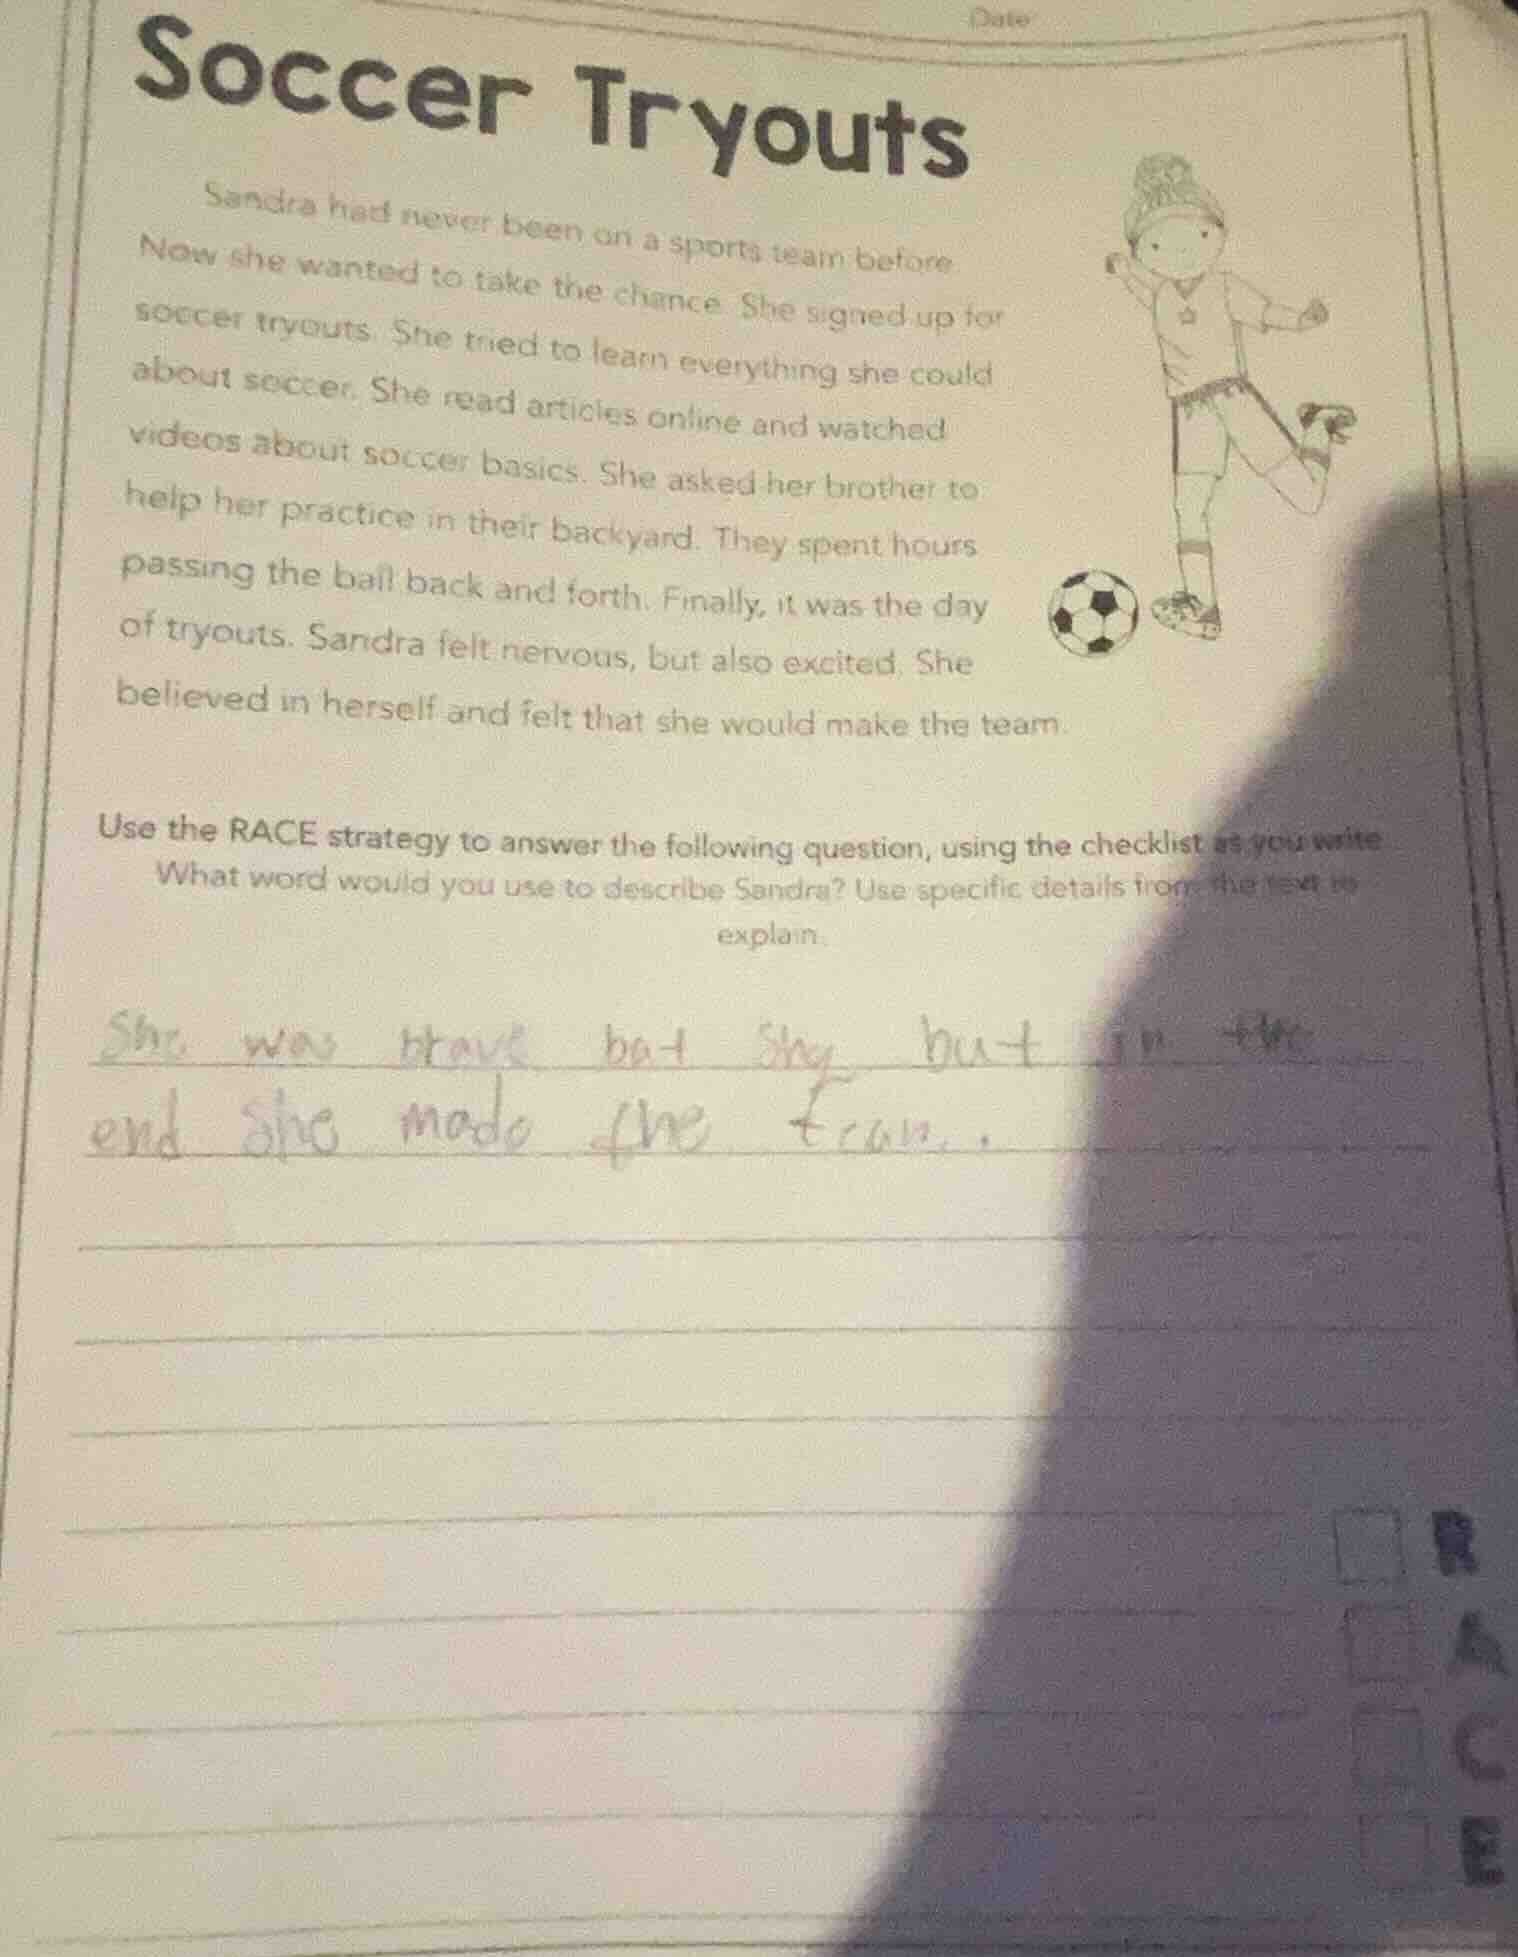 Date
Soccer Tryouts
Sandra had never been on a sports team before.
Now she wanted to take the chance. She signed up for
soccer tryouts. She tried to learn everything she could
about soccer. She read articles online and watched
videos about soccer basics. She asked her brother to
help her practice in their backyard. They spent hours
passing the ball back and forth. Finally, it was the day
of tryouts. Sandra felt nervous, but also excited. She
believed in herself and felt that she would make the team.
Use the RACE strategy to answer the following question, using the checklist as you write.
What word would you use to describe Sandra? Use specific details from the text to
explain.
She was brave bat Shy but in the
end She made the team.
R
A
C
E